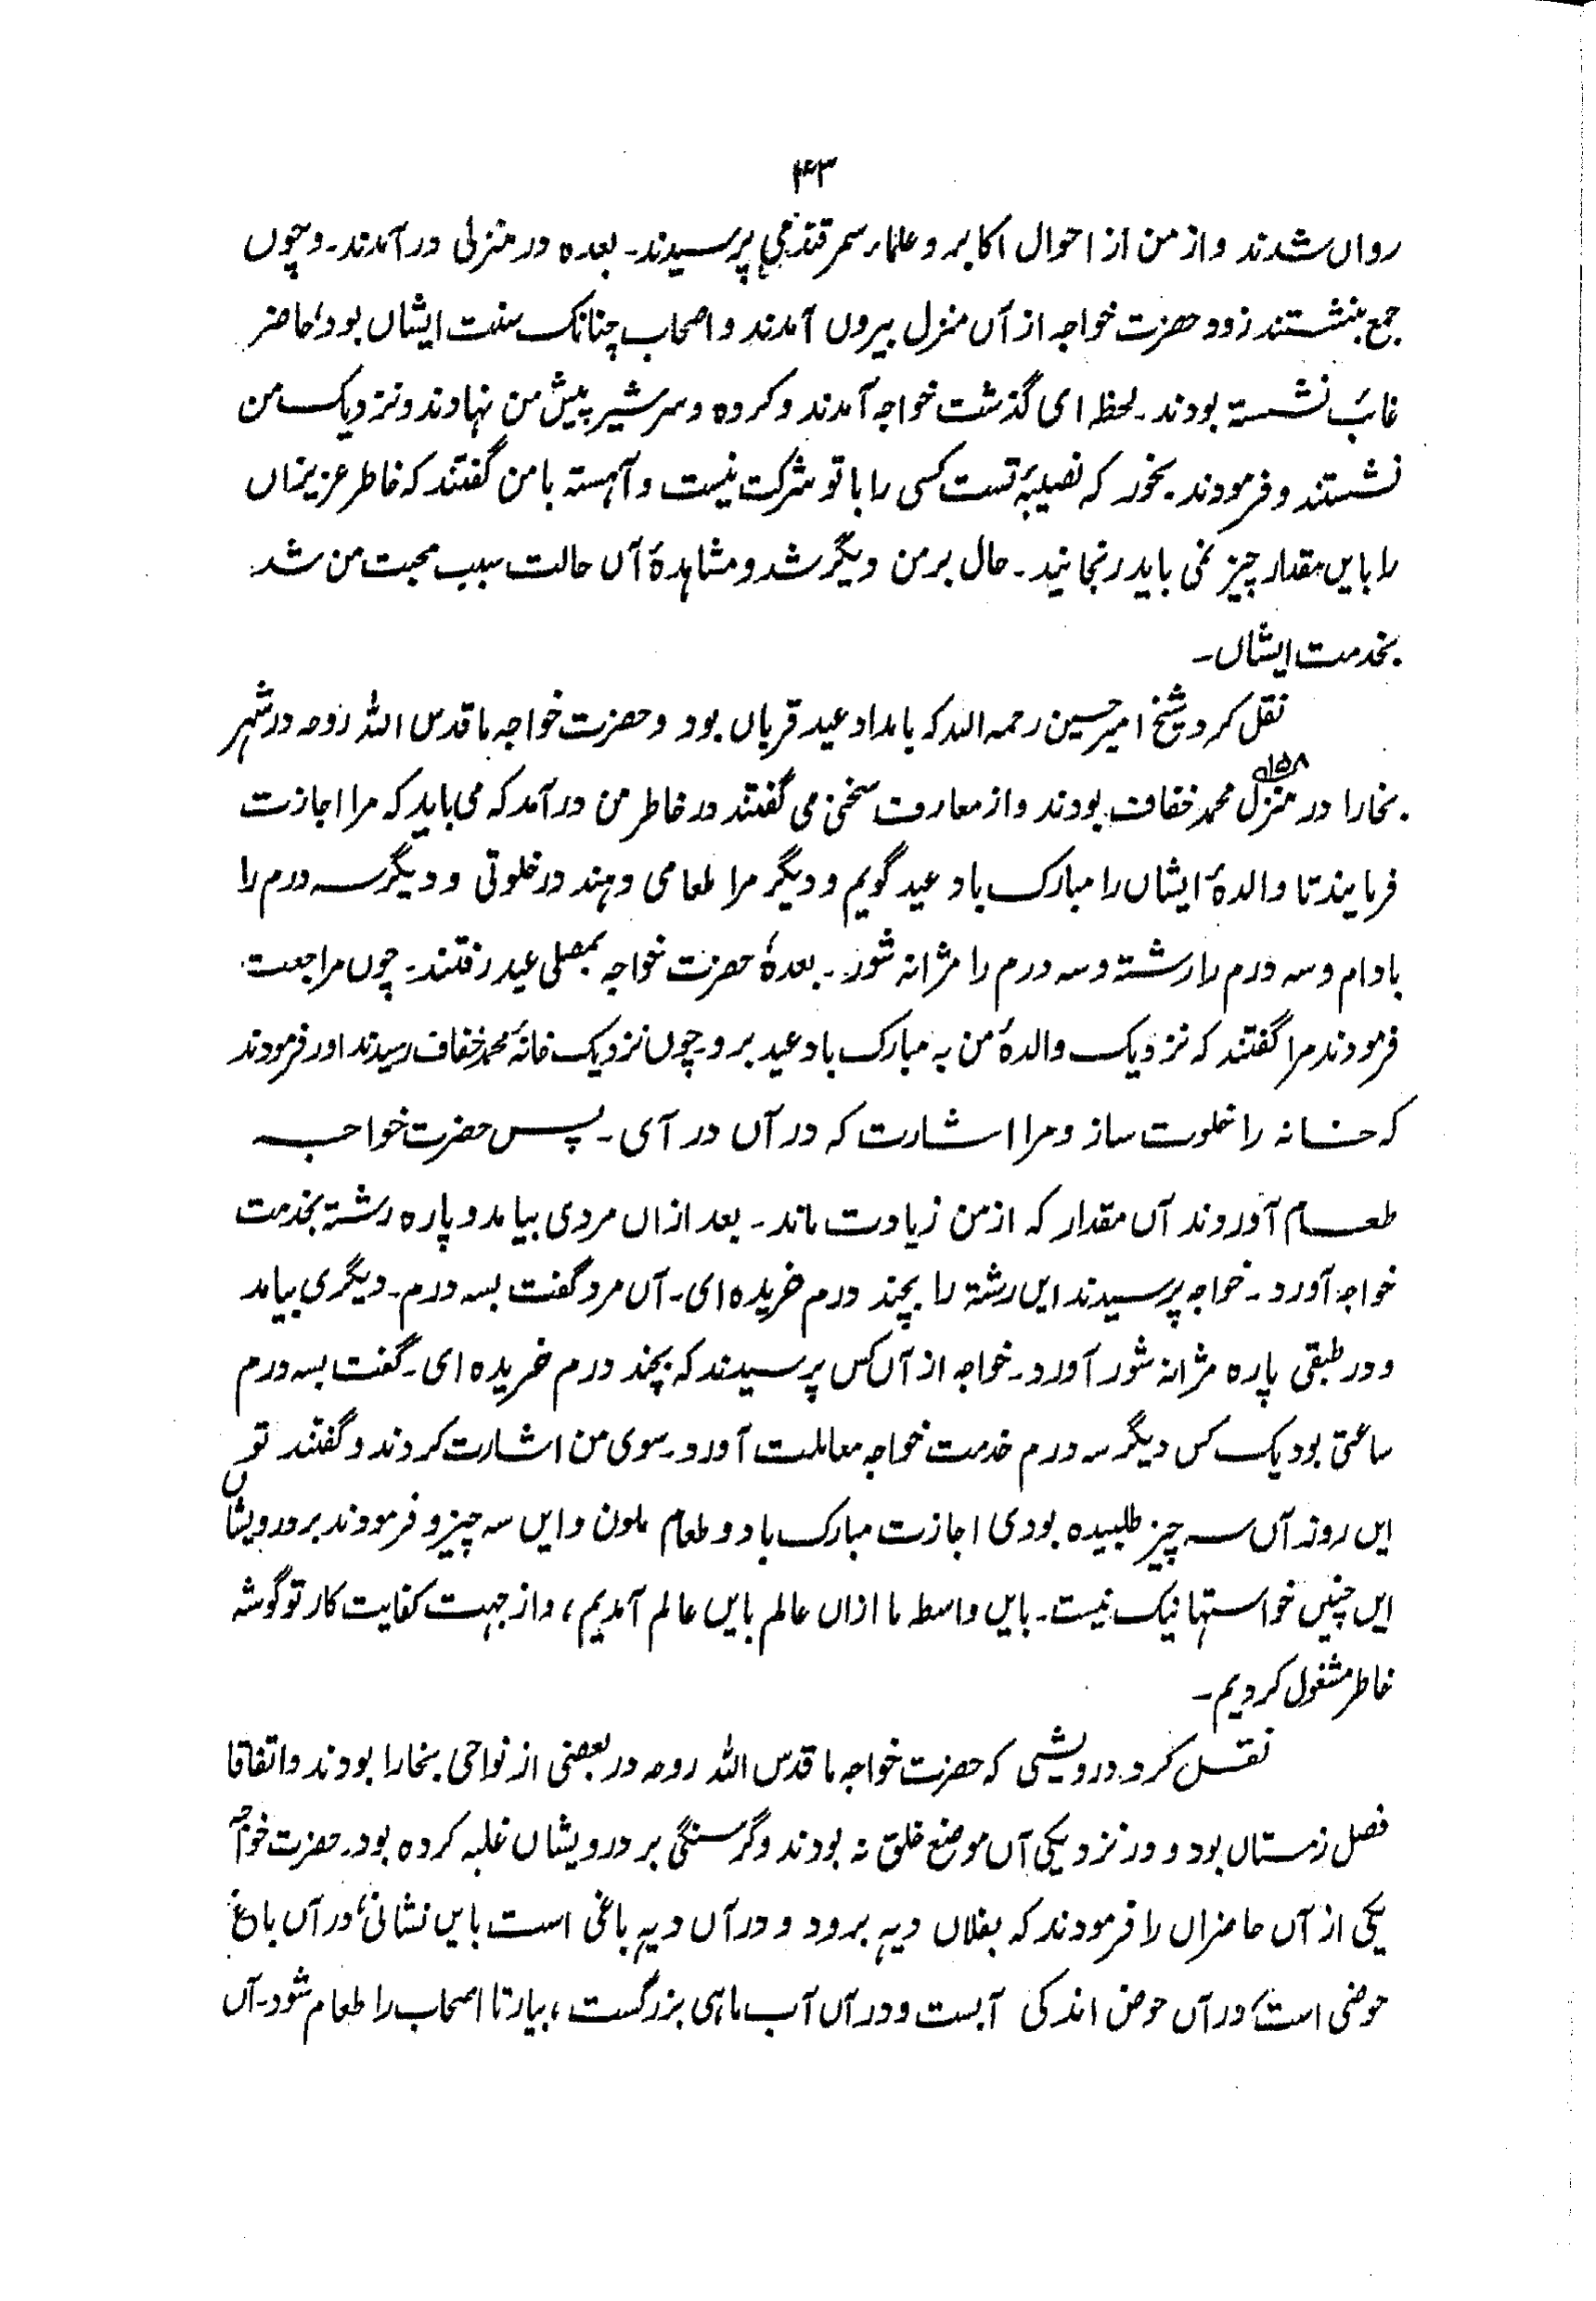 ۴۳
رواں شدند واز من از احوال اکابر و علماء سمرقند می پرسیدند۔ بعدہ در منزلی در آمدند۔ وچوں
جمع بنشستند زود حضرت خواجہ از آں منزل بیروں آمدند و اصحاب چنانک سنت ایشاں بود حاضر
غائب نشستہ بودند۔ لحظہ ای گذشت خواجہ آمدند وکردہ و سرشیر پیش من نہادند ونزدیک من
نشستند و فرمودند۔ بخور کہ نصیبۂ تست کسی را با تو شرکت نیست و آہستہ با من گفتند کہ خاطر عزیزاں
را بایں مقدار چیز نمی باید رنجانید۔ حال بر من دیگر شد و مشاہدۂ آں حالت سبب محبت من شد
بخدمت ایشاں۔
نقل کرد شیخ امیر حسین رحمہ اللہ کہ بامداد عید قرباں بود و حضرت خواجہ ما قدس اللہ روحہ در شہر
بخارا در منزل محمد خفاف بودند واز معارف سخن می گفتند در خاطر من در آمد کہ می باید کہ مرا اجازت
فرمایند تا والدۂ ایشاں را مبارک باد عید گویم و دیگر مرا طعامی دہند در خلوتی و دیگر سہ درم را
بادام و سہ درم را رشتہ و سہ درم را مژانہ شور۔ بعدۂ حضرت خواجہ بمصلی عید رفتند۔ چوں مراجعت
فرمودند مرا گفتند کہ نزدیک والدۂ من بہ مبارک باد عید برو۔ چوں نزدیک خانۂ محمد خفاف رسیدند اور فرمودند
کہ خانہ را خلوت ساز و مرا اشارت کہ در آں در آی۔ پس حضرت خواجہ
طعام آوردند آں مقدار کہ از من زیادت ماند۔ بعد ازاں مردی بیامد و پارہ رشتہ بخدمت
خواجہ آورد۔ خواجہ پرسیدند ایں رشتہ را بچند درم خریدہ ای۔ آں مرد گفت بسہ درم۔ دیگری بیامد
و در طبقی پارہ مژانہ شور آورد۔ خواجہ از آں کس پرسیدند کہ بچند درم خریدہ ای۔ گفت بسہ درم
ساعتی بود یک کس دیگر سہ درم خدمت خواجہ معاملت آورد۔ سوی من اشارت کردند و گفتند تو
ایں روز آں سہ چیز طلبیدہ بودی اجازت مبارک باد و طعام ملون و ایں سہ چیز و فرمودند بر درویشاں
ایں چنیں خواستہا نیک نیست۔ بایں واسطہ ما ازاں عالم بایں عالم آمدیم، واز جہت کفایت کار تو گوشہ
خاطر مشغول کردیم۔
نقل کرد درویشی کہ حضرت خواجہ ما قدس اللہ روحہ در بعضی از نواحی بخارا بودند واتفاقا
فصل زمستاں بود و در نزدیکی آں موضع خلق نہ بودند وگرسنگی بر درویشاں غلبہ کردہ بود۔ حضرت خواجہ
یکی از آں حاضراں را فرمودند کہ بفلاں دیہہ برود و در آں دیہہ باغی است بایں نشانی، در آں باغ
حوضی است، در آں حوض اندکی آبست و در آں آب ماہی بزرگست، بیار تا اصحاب را طعام شود۔ آں